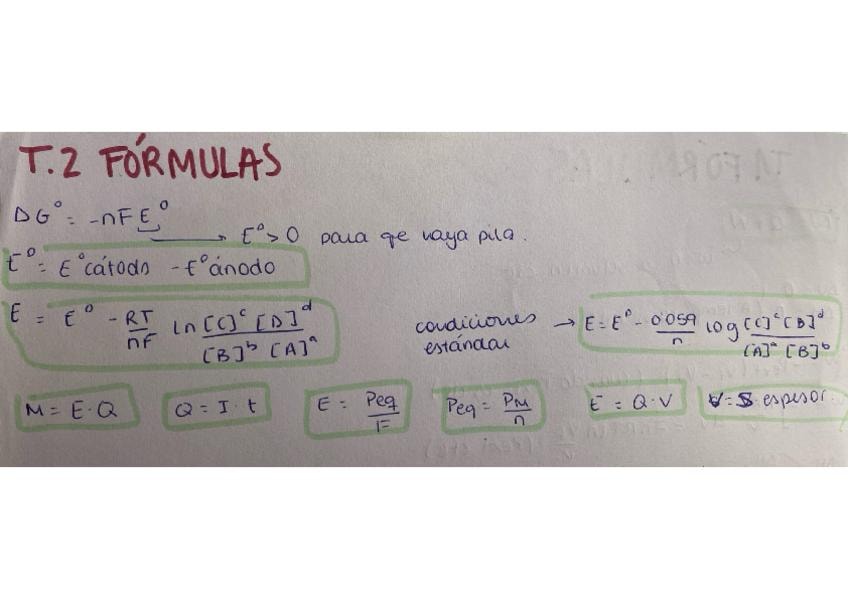 T.2 FÓRMULAS
ΔG° = -nFE°
E° > 0 para qe vaya pila.
E° = E°cátodo - E°ánodo
E = E° - RT/nF ln [C]ᶜ [D]ᵈ / [B]ᵇ [A]ᵃ
condiciones estándar → E = E° - 0'059/n log [C]ᶜ [B]ᵈ / [A]ᵃ [B]ᵇ
M = E · Q
Q = I · t
E = Peq/F
Peq = PM/n
E = Q · V
V = S · espesor.